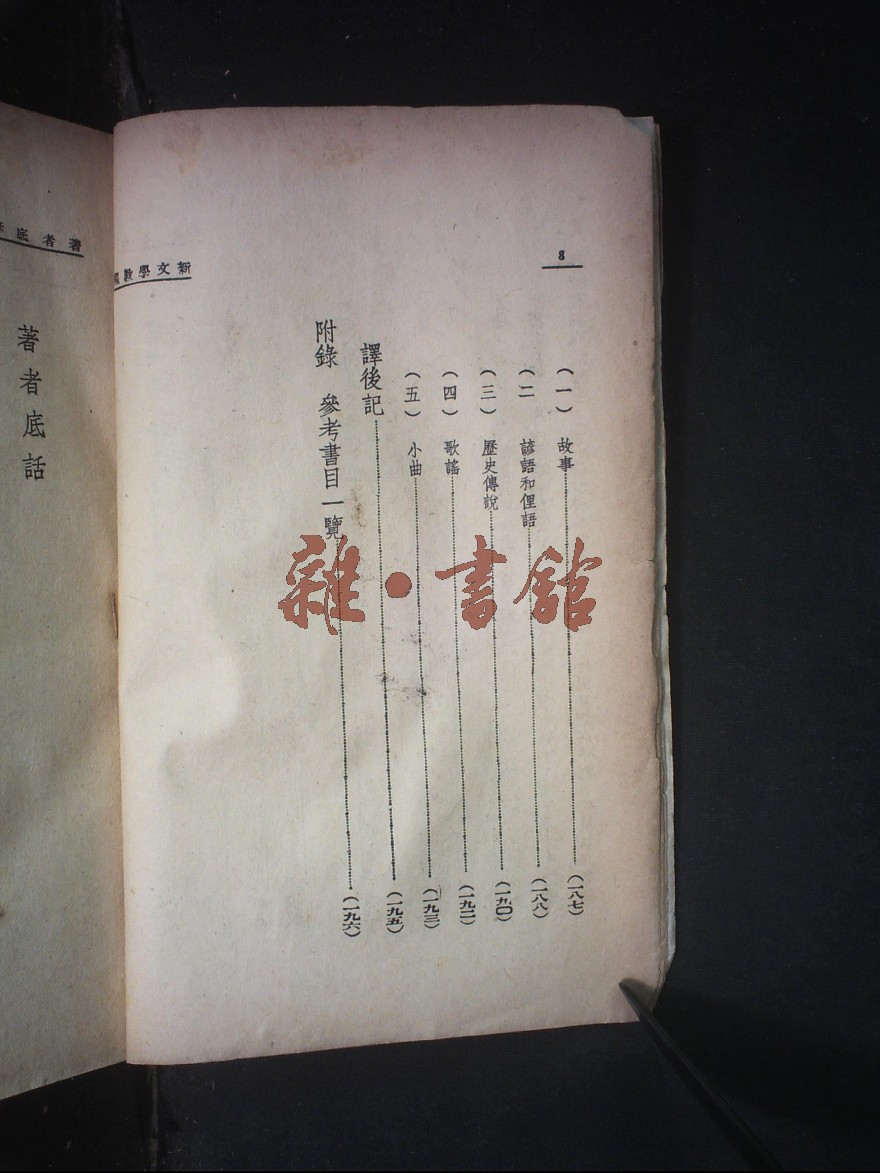 8
新文學教
(一) 故事(一八七)
(二) 諺語和俚語(一八八)
(三) 歷史傳說(一九〇)
(四) 歌謠(一九二)
(五) 小曲(一九三)
譯後記(一九五)
附錄 參考書目一覽(一九六)
著者底
著者底話
雜·書館